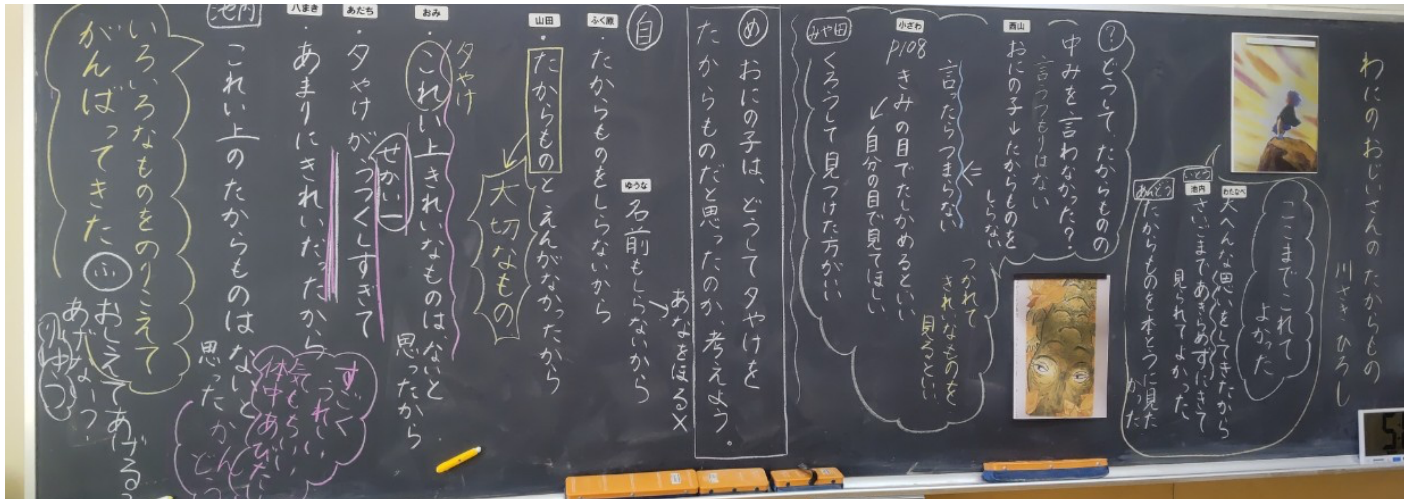 わにのおじいさんのたからもの
川さき ひろし
ここまでこれて
よかった
わたなべ
大へんな思いをしてきたから
いとう
池内
さいごまであきらめずにきて
見られてよかった
あんどう
たからものを本とうに見た
かった
?どうして、たからものの
中みを言わなかった?
言うつもりはない
西山
おにの子→たからものを
しらない
言ったらつまらない
小ざわ
P108 きみの目でたしかめるといい
自分の目で見てほしい
つかれて
きれいなものを
見るといい
みや田
くろうして見つけた方がいい
め おにの子は、どうして夕やけを
たからものだと思ったのか、考えよう。
自
ゆうな
名前もしらないから
あなをほる×
ふく原
たからものをしらないから
山田
・たからものとえんがなかったから
大切なもの
夕やけ
おみ
・これい上きれいなものは、ないと
思ったから
せかい一
あだち
・夕やけがうつくしすぎて
八まき
・あまりにきれいだったから
池内
これい上のたからものはないと
思ったから
すごく
うれしい
いろいろなものをのりこえて
がんばってきた
ふ おしえてあげる
あげない